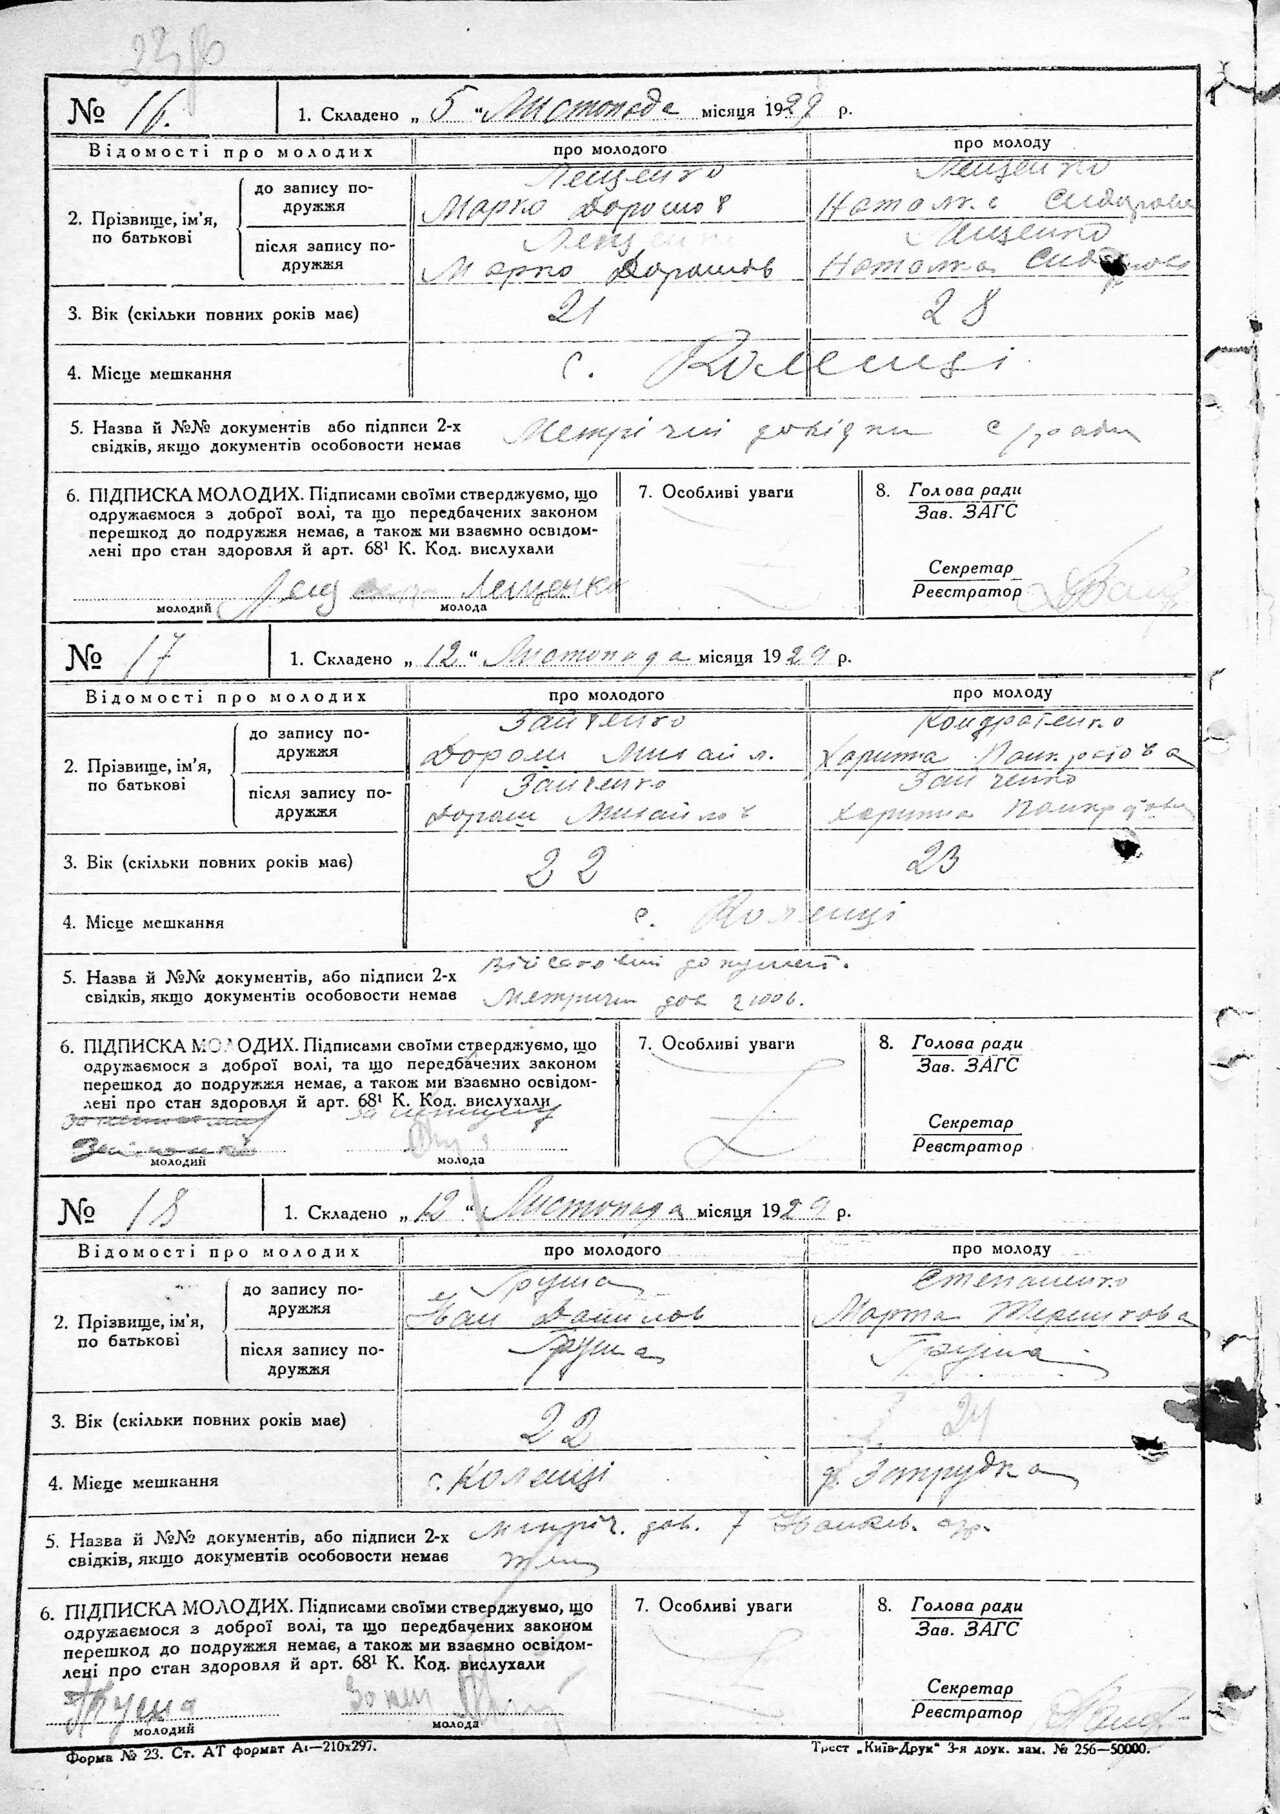 № 16. 1. Складено „5“ Листопада місяця 1929 р.
Відомості про молодих про молодого про молоду
2. Прізвище, ім’я, по батькові
до запису подружжя
Лещенко Лещенко
Марко Дорошов Наталка Сидорова
після запису подружжя
Лещенко Лещенко
Марко Дорошов Наталка
3. Вік (скільки повних років має) 21 28
4. Місце мешкання с. Коленці
5. Назва й №№ документів або підписи 2-х
свідків, якщо документів особовости немає
Метричні довідки с/ради
6. ПІДПИСКА МОЛОДИХ. Підписами своїми стверджуємо, що
одружаємося з доброї волі, та що передбачених законом
перешкод до подружжя немає, а також ми взаємно освідом-
лені про стан здоровля й арт. 68¹ К. Код. вислухали
Лещенко
молодий молода
7. Особливі уваги
8. Голова ради
Зав. ЗАГС
Секретар
Реєстратор
№ 17 1. Складено „12“ Листопада місяця 1929 р.
Відомості про молодих про молодого про молоду
2. Прізвище, ім’я, по батькові
до запису подружжя
Зайченко Кондратенко
Дорош Михайл. Харитка Панкратова
після запису подружжя
Зайченко Зайченко
Дорош Михайлов Харитка
3. Вік (скільки повних років має) 22 23
4. Місце мешкання с. Коленці
5. Назва й №№ документів, або підписи 2-х
свідків, якщо документів особовости немає
Військовий документ.
Метричн дов
6. ПІДПИСКА МОЛОДИХ. Підписами своїми стверджуємо, що
одружаємося з доброї волі, та що передбачених законом
перешкод до подружжя немає, а також ми взаємно освідом-
лені про стан здоровля й арт. 68¹ К. Код. вислухали
молодий молода
7. Особливі уваги
8. Голова ради
Зав. ЗАГС
Секретар
Реєстратор
№ 18 1. Складено „12“ Листопада місяця 1929 р.
Відомості про молодих про молодого про молоду
2. Прізвище, ім’я, по батькові
до запису подружжя
Груша Степаненко
Іван Данилов Марта
після запису подружжя
Груша Груша
3. Вік (скільки повних років має) 22 24
4. Місце мешкання с. Коленці Запрудка
5. Назва й №№ документів, або підписи 2-х
свідків, якщо документів особовости немає
Метрич. дов.
6. ПІДПИСКА МОЛОДИХ. Підписами своїми стверджуємо, що
одружаємося з доброї волі, та що передбачених законом
перешкод до подружжя немає, а також ми взаємно освідом-
лені про стан здоровля й арт. 68¹ К. Код. вислухали
Груша
молодий молода
7. Особливі уваги
8. Голова ради
Зав. ЗАГС
Секретар
Реєстратор
Форма № 23. Ст. АТ формат А₄—210x297.
Трест „Київ-Друк“ 3-я друк. зам. № 256—50000.